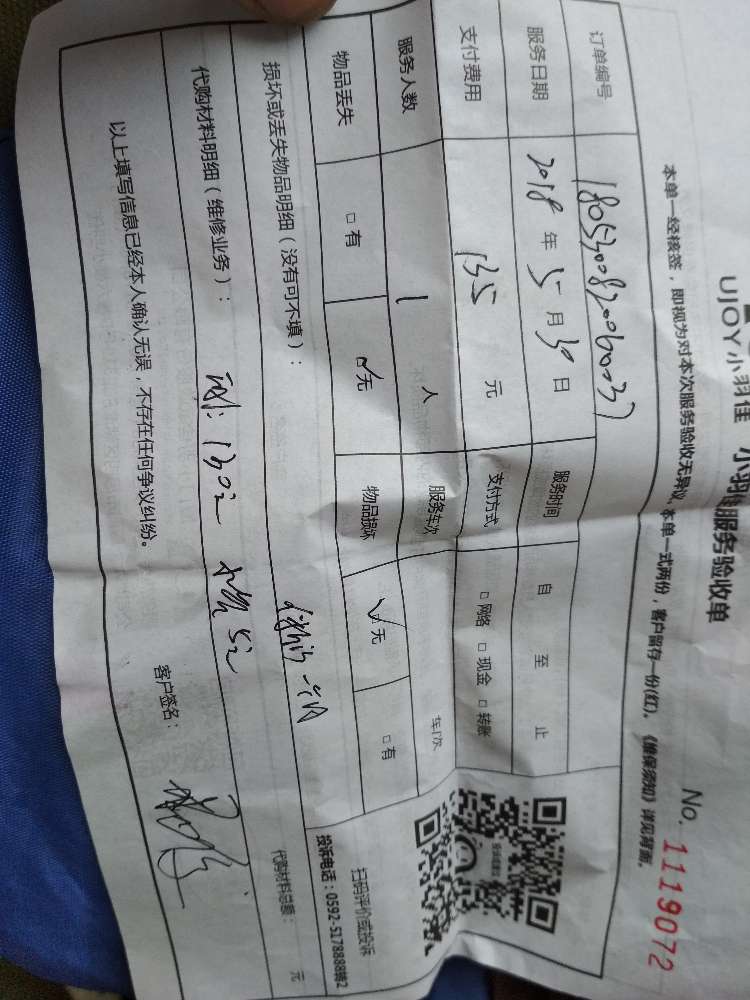 UJOY小羽佳 小羽佳服务验收单
No. 1119072
本单一经核签，即视为对本次服务验收无异议，本单一式两份，客户留存一份(红)。《维保须知》详见背面。
订单编号
服务日期 2018 年 5 月 30 日 服务时间 自 至 止
支付费用 135 元 支付方式 □ 网络 □ 现金 □ 转账
服务人数 1 人 服务车次 车/次
物品丢失 □ 有 ☑ 无 物品损坏 ☑ 无 □ 有
扫码评价或投诉
投诉电话：0592-5178888转2
损坏或丢失物品明细（没有可不填）：
代购材料明细（维修业务）：
代购材料总额： 元
以上填写信息已经本人确认无误，不存在任何争议纠纷。
客户签名：